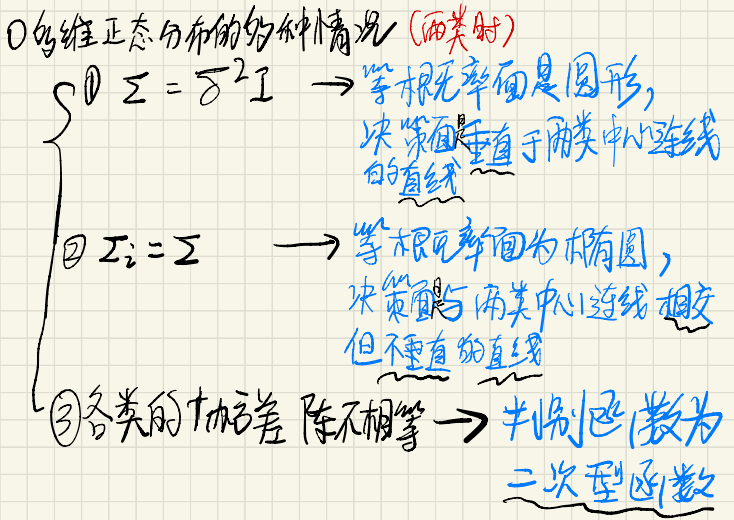 ○多维正态分布的多种情况(两类时)
① Σ = δ²I → 等概率面是圆形,
决策面是垂直于两类中心连线
的直线
② Σi = Σ → 等概率面为椭圆,
决策面是与两类中心连线相交
但不垂直的直线
③ 各类的协方差阵不相等 → 判别函数为
二次型函数